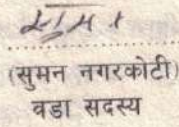 (सुमन नगरकोटी)
वडा सदस्य